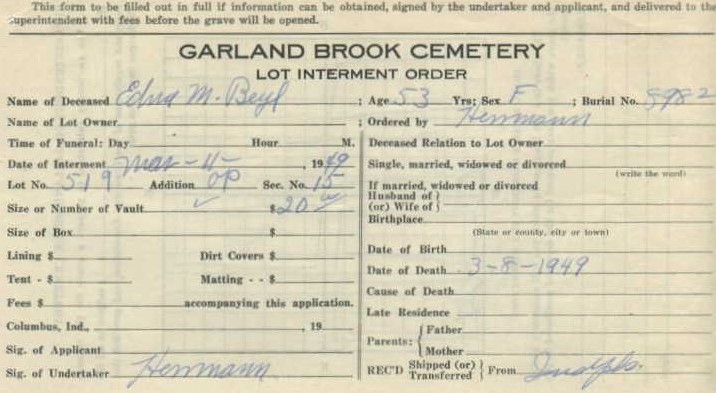 This form to be filled out in full if information can be obtained, signed by the undertaker and applicant, and delivered to the
superintendent with fees before the grave will be opened.
GARLAND BROOK CEMETERY
LOT INTERMENT ORDER
Name of Deceased Edna M. Beyl ; Age 53 Yrs; Sex F ; Burial No. 8982
Name of Lot Owner ; Ordered by Herrmann
Time of Funeral: Day Hour M.
Date of Interment Mar-4- , 1949
Lot No. 519 Addition OP Sec. No. 15
Size or Number of Vault ✓ $ 20
Size of Box $
Lining $ Dirt Covers $
Tent - $ Matting - - $
Fees $ accompanying this application.
Columbus, Ind., , 19
Sig. of Applicant
Sig. of Undertaker Herrmann
Deceased Relation to Lot Owner
Single, married, widowed or divorced
(write the word)
If married, widowed or divorced
Husband of }
(or) Wife of }
Birthplace
(State or county, city or town)
Date of Birth
Date of Death 3-8-1949
Cause of Death
Late Residence
Parents: { Father
Mother
REC'D Shipped (or) Transferred } From Indpls.